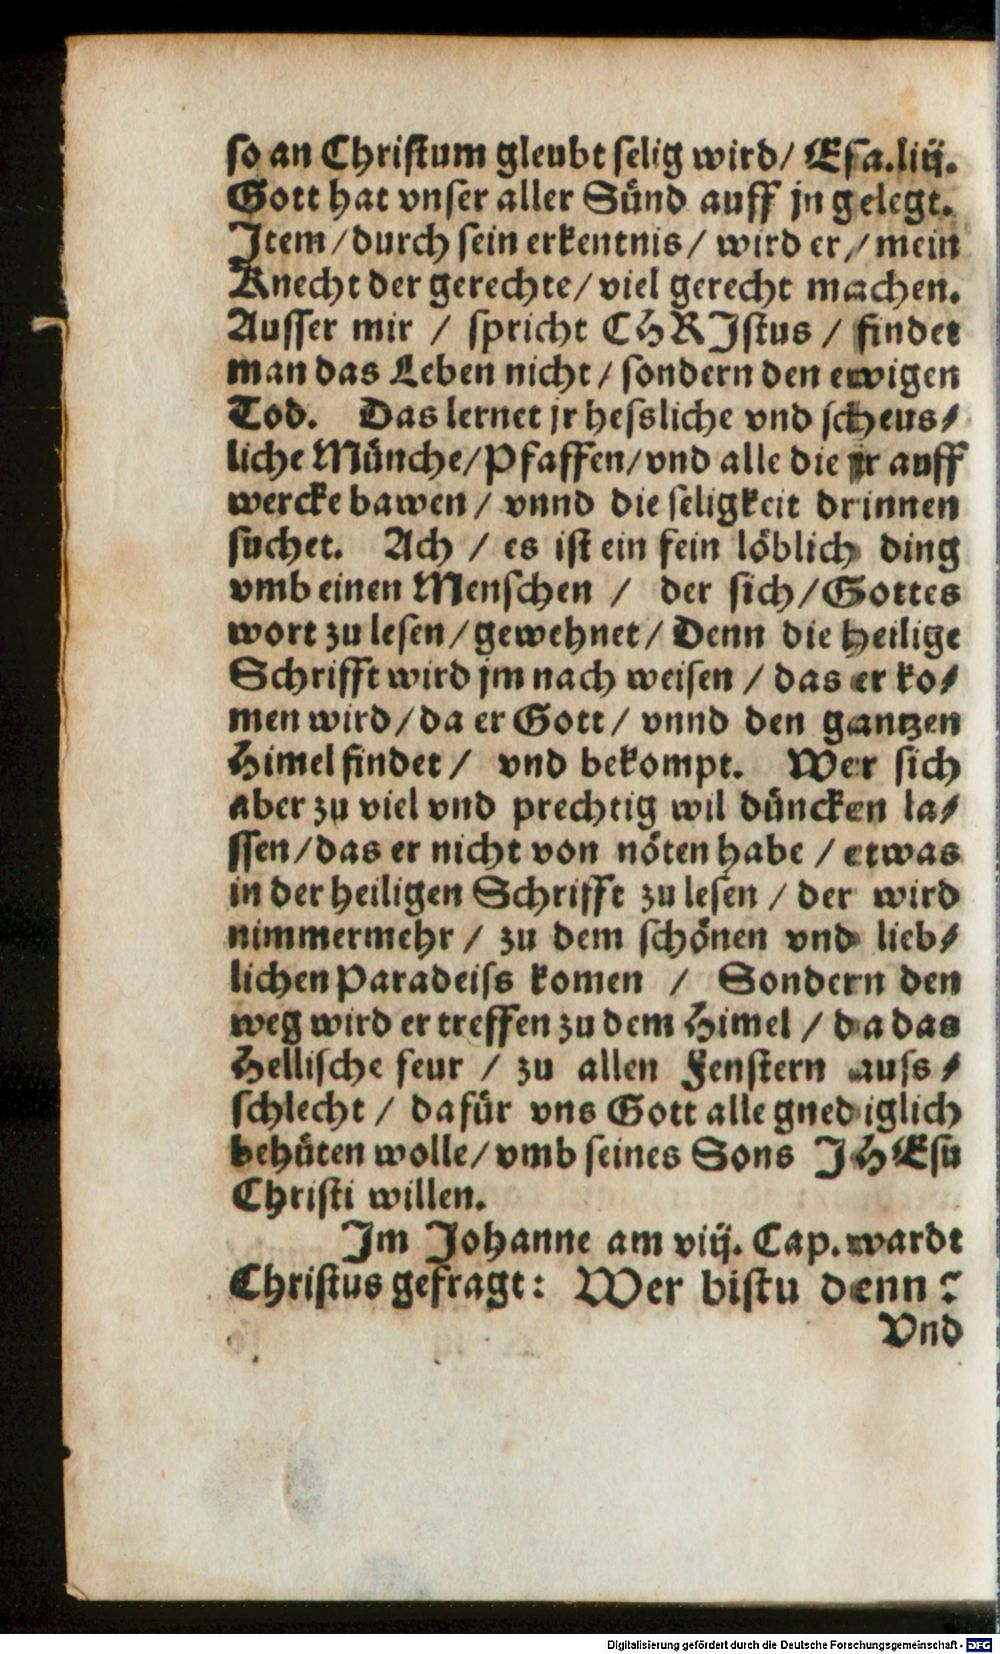 so an Christum gleubt selig wird/ Esa.liij.
Gott hat vnser aller Sünd auff jn gelegt.
Item/durch sein erkentnis/ wird er/mein
Knecht der gerechte/ viel gerecht machen.
Ausser mir / spricht CHRIstus / findet
man das Leben nicht/ sondern den ewigen
Tod. Das lernet jr hessliche vnd scheus/
liche Münche/Pfaffen/vnd alle die jr auff
wercke bawen / vnnd die seligkeit drinnen
suchet. Ach / es ist ein fein löblich ding
vmb einen Menschen / der sich/Gottes
wort zu lesen/gewehnet/ Denn die Heilige
Schrifft wird jm nach weisen / das er ko/
men wird/da er Gott/ vnnd den gantzen
Himel findet / vnd bekompt. Wer sich
aber zu viel vnd prechtig wil düncken la/
ssen/das er nicht von nöten habe / etwas
in der heiligen Schrifft zu lesen / der wird
nimmermehr / zu dem schönen vnd lieb/
lichen Paradeiss komen / Sondern den
weg wird er treffen zu dem Himel / da das
Hellische feur / zu allen Fenstern auss/
schlecht / dafür vns Gott alle gnediglich
behüten wolle/vmb seines Sons IHEsu
Christi willen.
Im Johanne am viij. Cap. wardt
Christus gefragt: Wer bistu denn?
Vnd
Digitalisierung gefördert durch die Deutsche Forschungsgemeinschaft - DFG